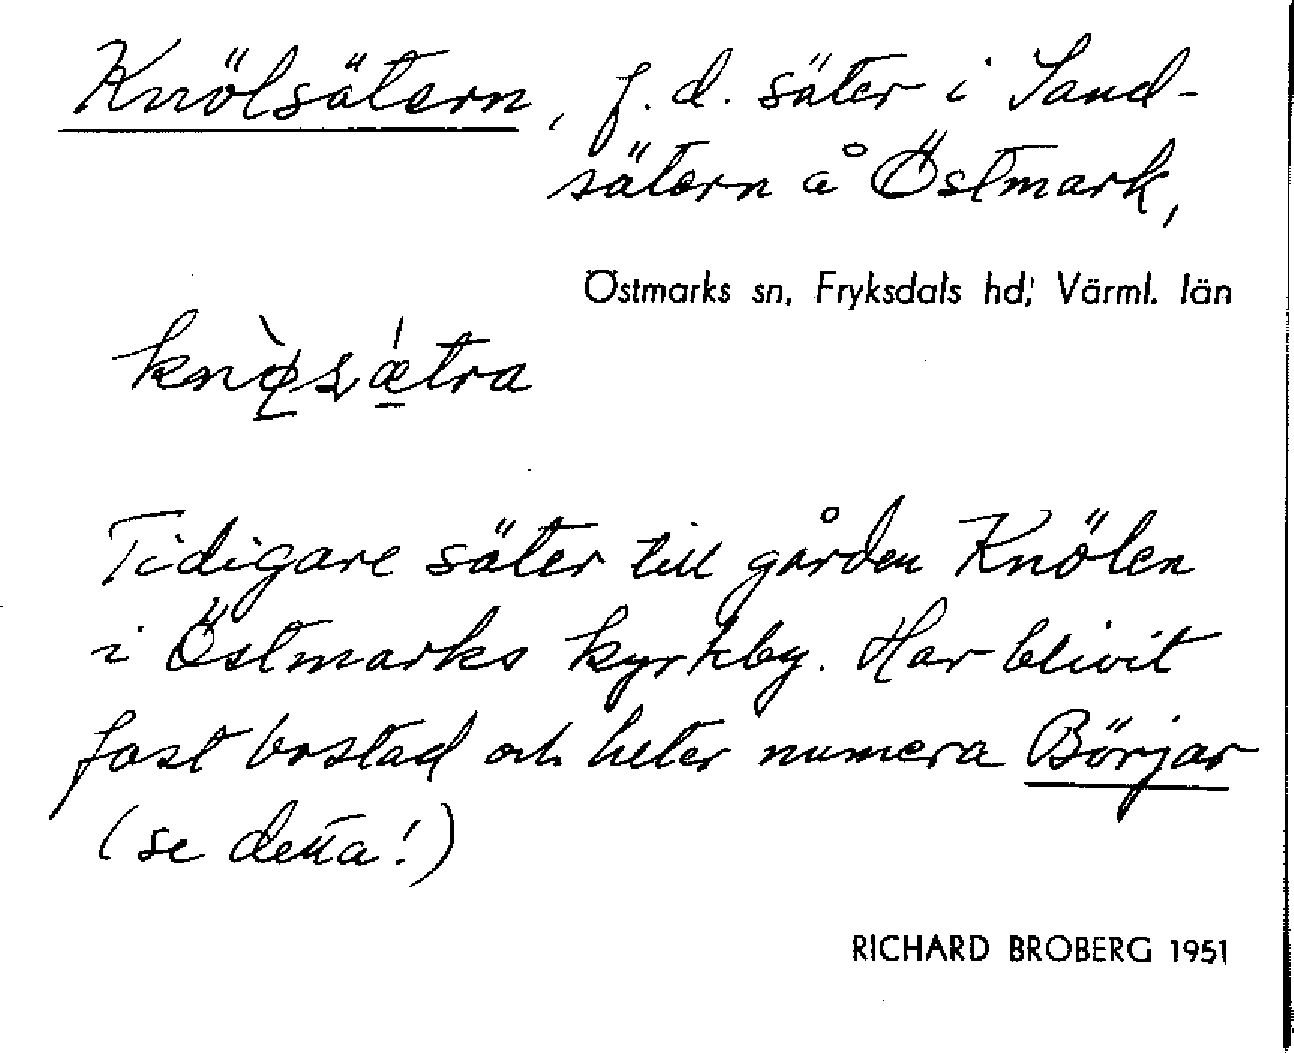 Knölsätern, f.d. säter i Sand-
sätern å Östmark,
Östmarks sn, Fryksdals hd, Värml. län
Tidigare säter till gården Knölen
i Östmarks kyrkby. Har blivit
fast bostad och heter numera Börjar
(se detta!)
RICHARD BROBERG 1951